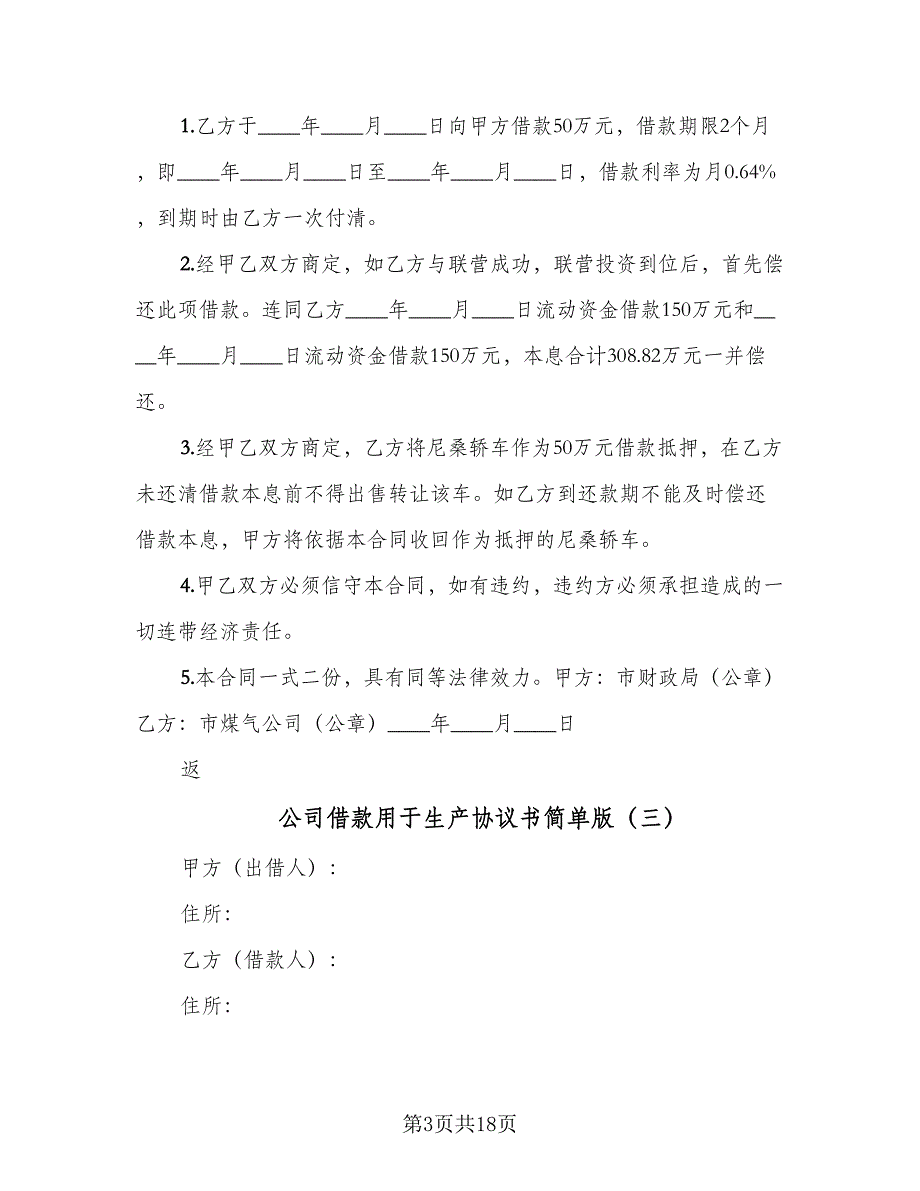 1.乙方于____年____月____日向甲方借款50万元，借款期限2个月
，即____年____月____日至____年____月____日，借款利率为月0.64%
，到期时由乙方一次付清。
2.经甲乙双方商定，如乙方与联营成功，联营投资到位后，首先偿
还此项借款。连同乙方____年____月____日流动资金借款150万元和__
__年____月____日流动资金借款150万元，本息合计308.82万元一并偿
还。
3.经甲乙双方商定，乙方将尼桑轿车作为50万元借款抵押，在乙方
未还清借款本息前不得出售转让该车。如乙方到还款期不能及时偿还
借款本息，甲方将依据本合同收回作为抵押的尼桑轿车。
4.甲乙双方必须信守本合同，如有违约，违约方必须承担造成的一
切连带经济责任。
5.本合同一式二份，具有同等法律效力。甲方：市财政局（公章）
乙方：市煤气公司（公章）____年____月____日
返
公司借款用于生产协议书简单版（三）
甲方（出借人）：
住所：
乙方（借款人）：
住所：
第3页共18页